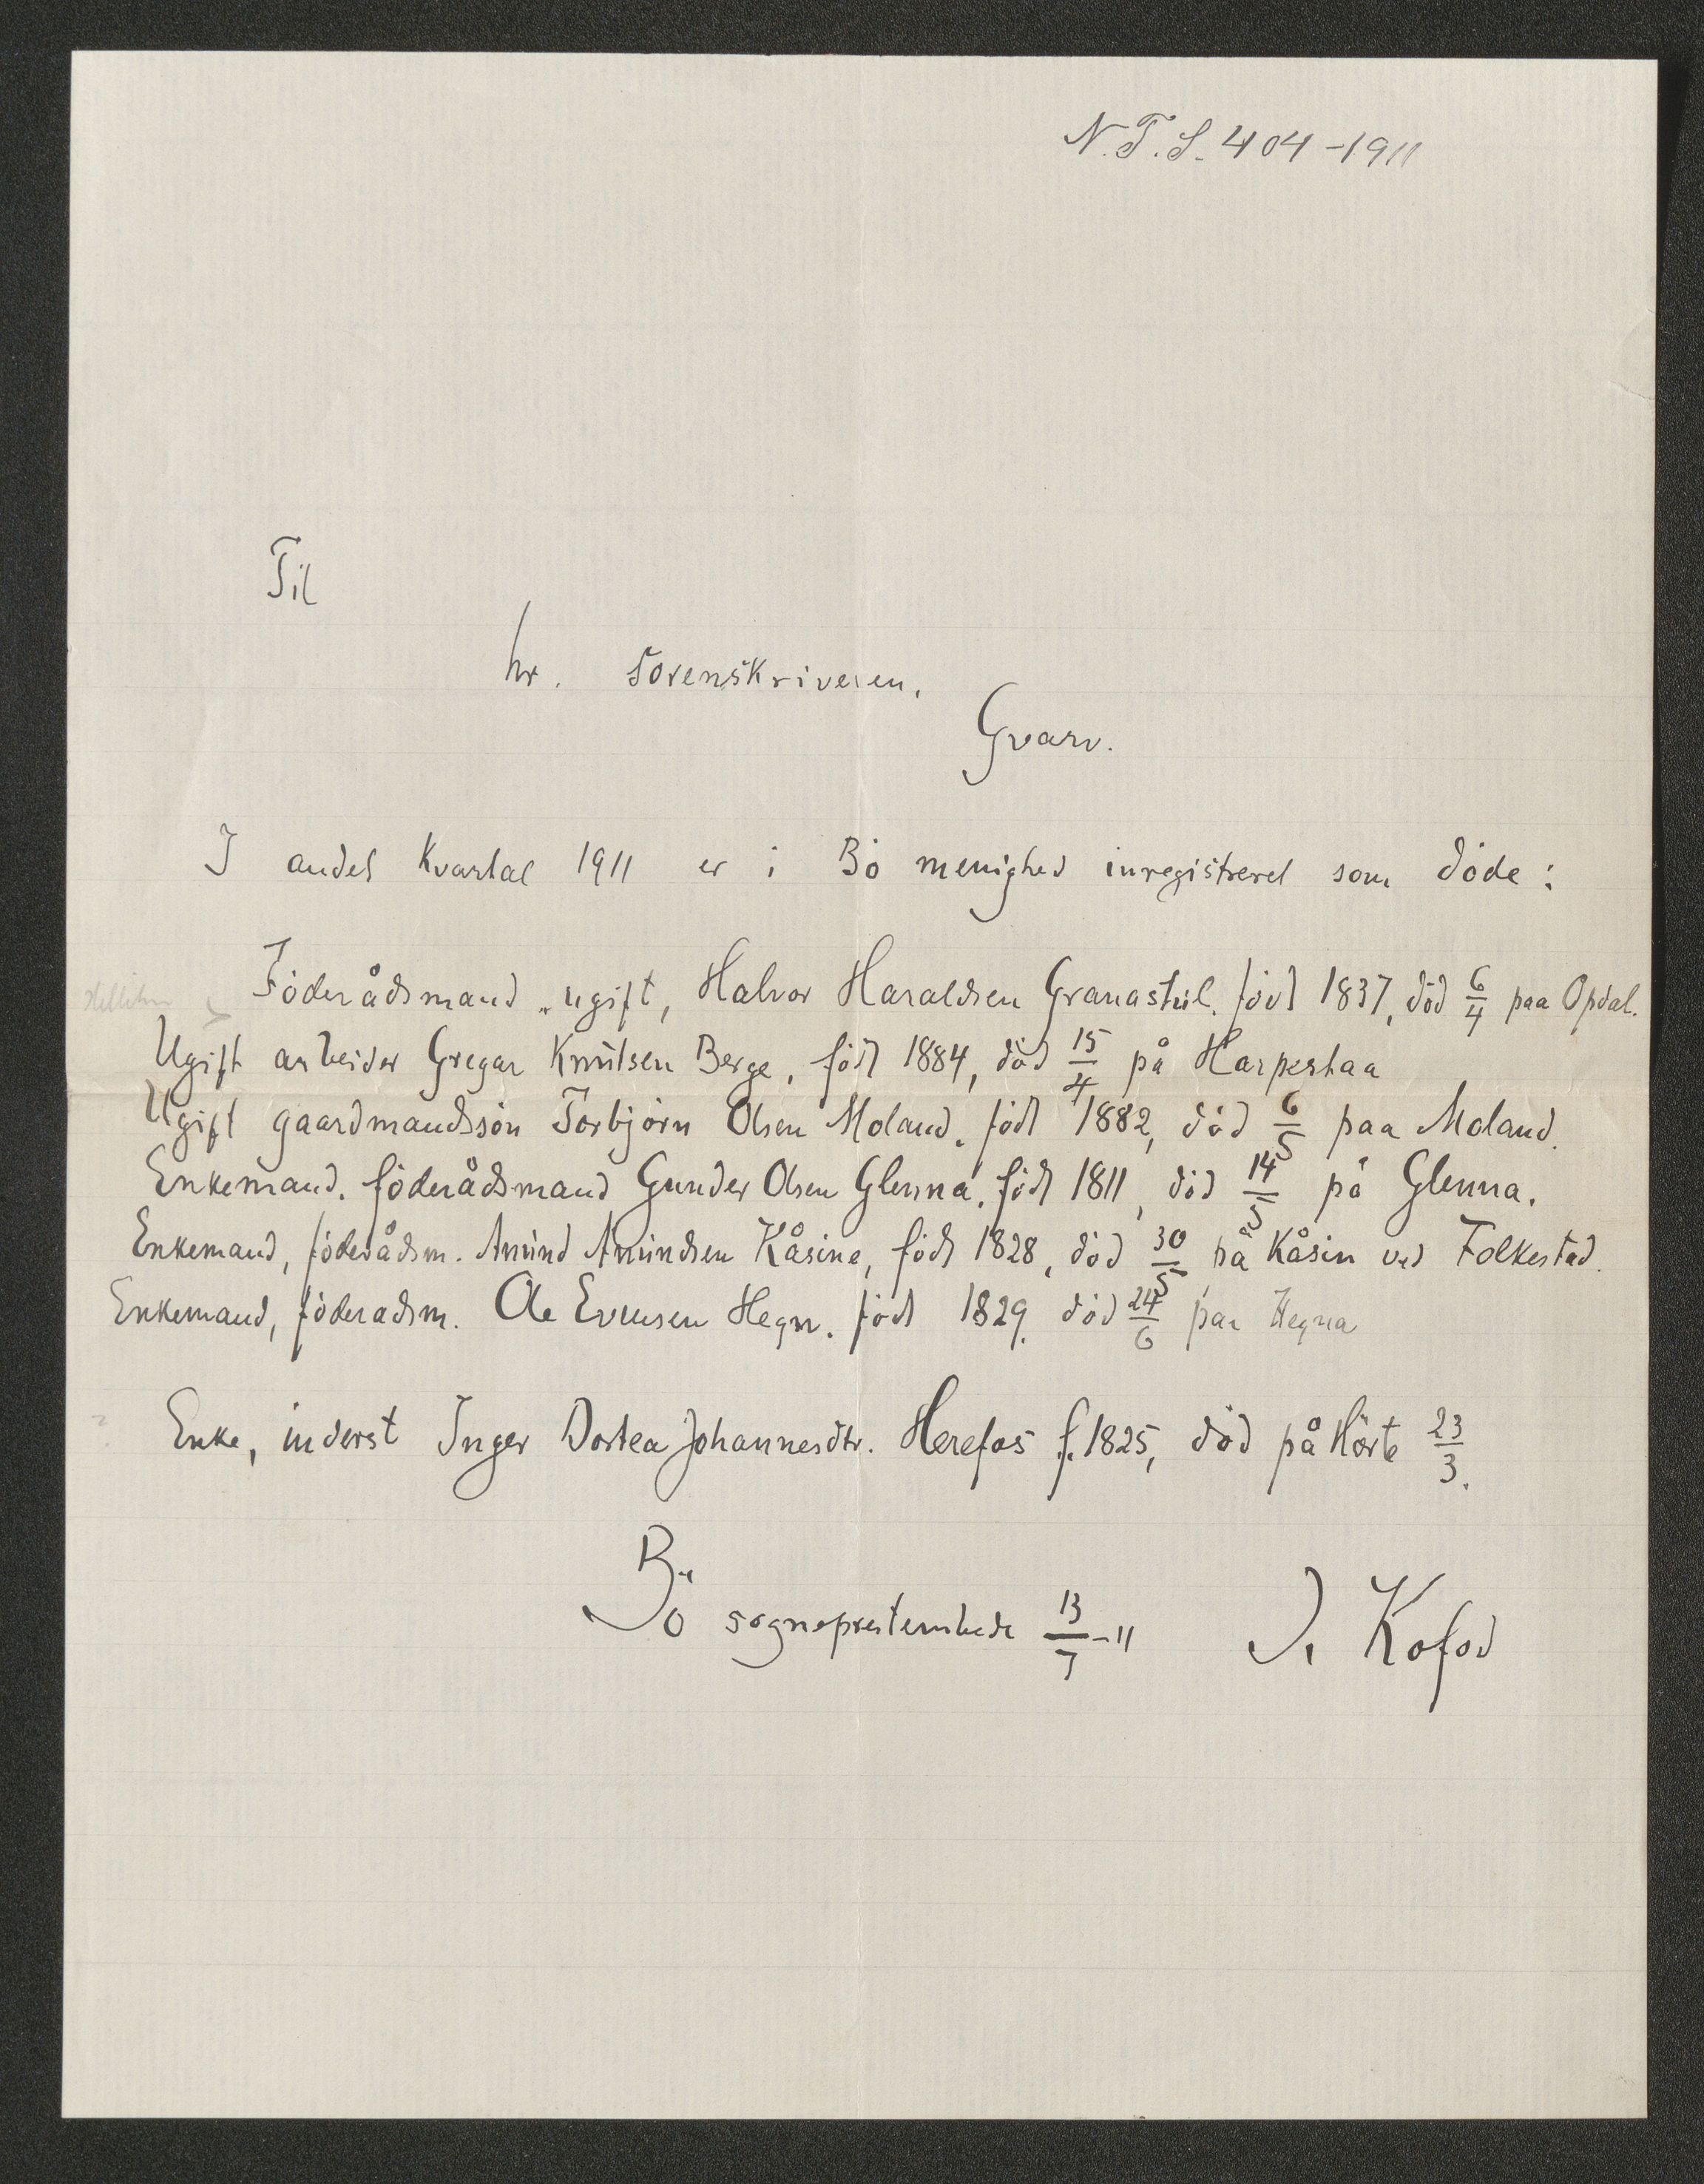 N.T.S. 404-1911
Til
hr. sorenskriveren,
Gvarv.
I andet Kvartal 1911 er i Bö menighed inregistreret som döde:
Föderådsmand, ugift, Halvor Haraldsen Granastul, födt 1837, död 6/4 paa Opdal.
Ugift arbeider Gregar Knutsen Berge, födt 1884, död 15/4 på Harpestaa
Ugift gaardmandssön Torbjörn Olsen Moland, födt 1882, död 6/5 paa Moland.
Enkemand, föderådsmand Gunder Olsen Glenna, födt 1811, död 14/5 på Glenna.
Enkemand, föderådsm. Amund Amundsen Kåsine, födt 1828, död 30/5 på Kåsin ved Folkestad.
Enkemand, föderadsm. Ole Evensen Hegn, födt 1829, död 24/6 paa Hegna
Enke, inderst Inger Dortea Johannesdtr. Herefos f. 1825, död på Hörte 23/3.
Bö sogneprestembede 13/7-11 J. Kofod